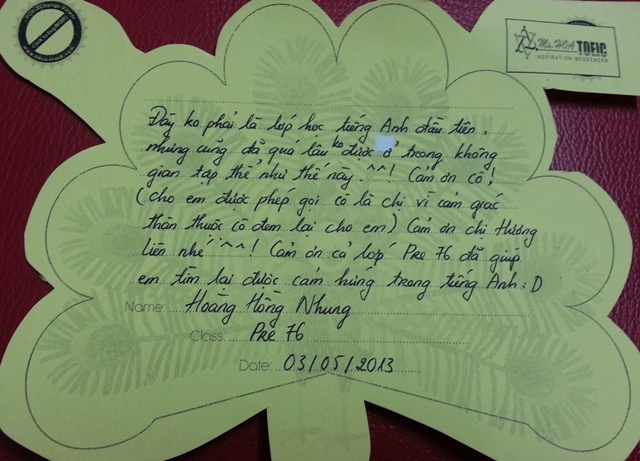 Ms. HOA TOEIC
INSPIRATION MESSENGER
Đây ko phải là lớp học tiếng Anh đầu tiên,
nhưng cũng đã quá lâu ko được ở trong không
gian tập thể như thế này. ^^! Cảm ơn cô!
(cho em được phép gọi cô là chị vì cảm giác
thân thuộc cô đem lại cho em) Cảm ơn chị Hương
Liên nhé ^^! Cảm ơn cả lớp Pre 76 đã giúp
em tìm lại được cảm hứng trong tiếng Anh :D
Name: Hoàng Hồng Nhung
Class: Pre 76
Date: 03/05/2013